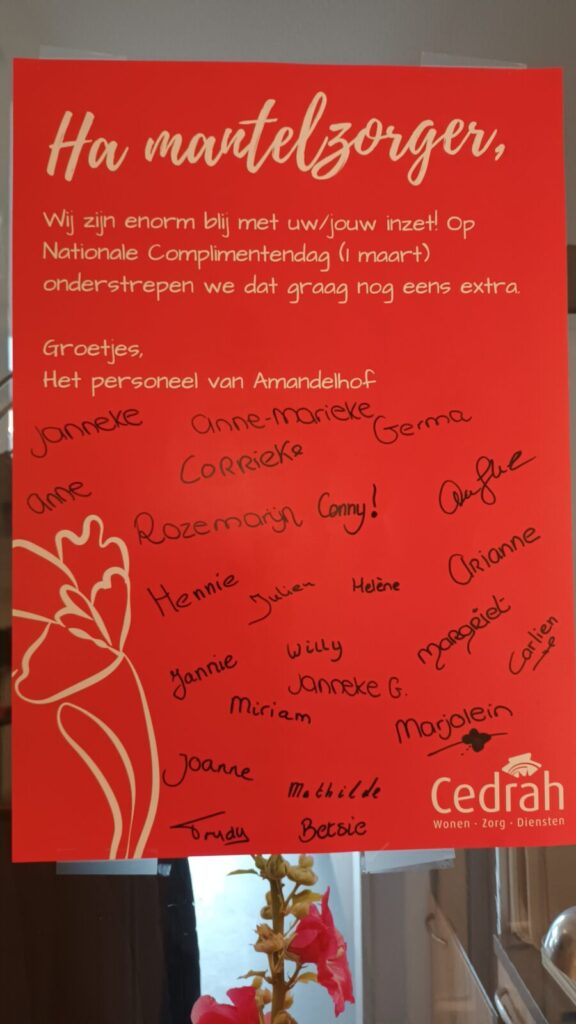 Ha mantelzorger,
Wij zijn enorm blij met uw/jouw inzet! Op
Nationale Complimentendag (1 maart)
onderstrepen we dat graag nog eens extra.
Groetjes,
Het personeel van Amandelhof
Janneke
Anne-Marieke
Germa
Corrieke
Anne
Rozemarijn
Conny!
Arianne
Hennie
Julien
Helène
Margriet
Carlien
Willy
Jannie
Janneke G.
Miriam
Marjolein
Joanne
Mathilde
Trudy
Betsie
Cedrah
Wonen · Zorg · Diensten